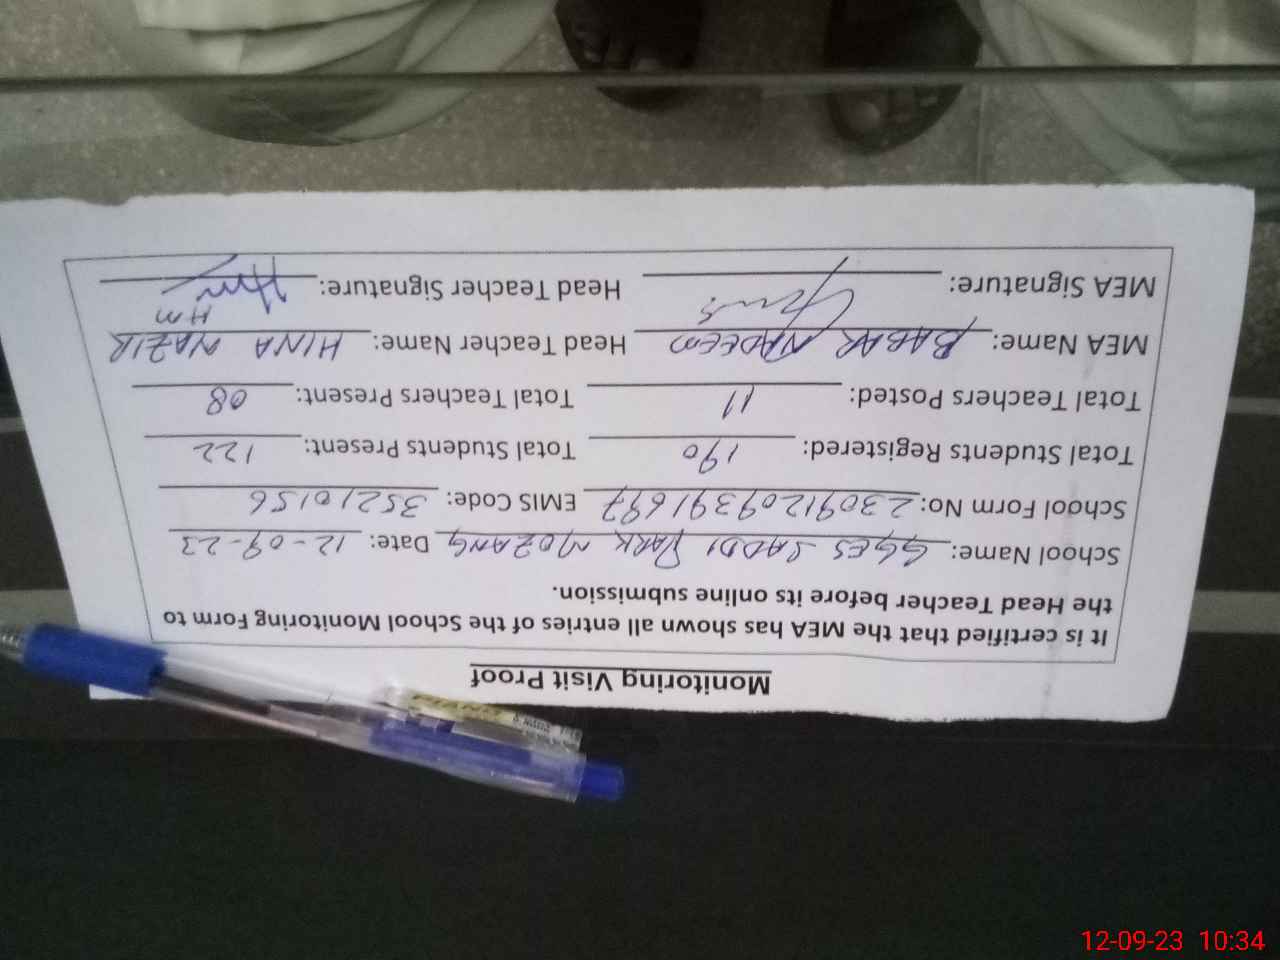 Monitoring Visit Proof
It is certified that the MEA has shown all entries of the School Monitoring Form to
the Head Teacher before its online submission.
School Name: GGES SADDI PARK MOZANG Date: 12-09-23
School Form No: 23091209391697 EMIS Code: 35210156
Total Students Registered: 190 Total Students Present: 122
Total Teachers Posted: 11 Total Teachers Present: 08
MEA Name: BABAR NADEEM Head Teacher Name: HINA NAZIR
HM
MEA Signature: Head Teacher Signature:
12-09-23 10:34